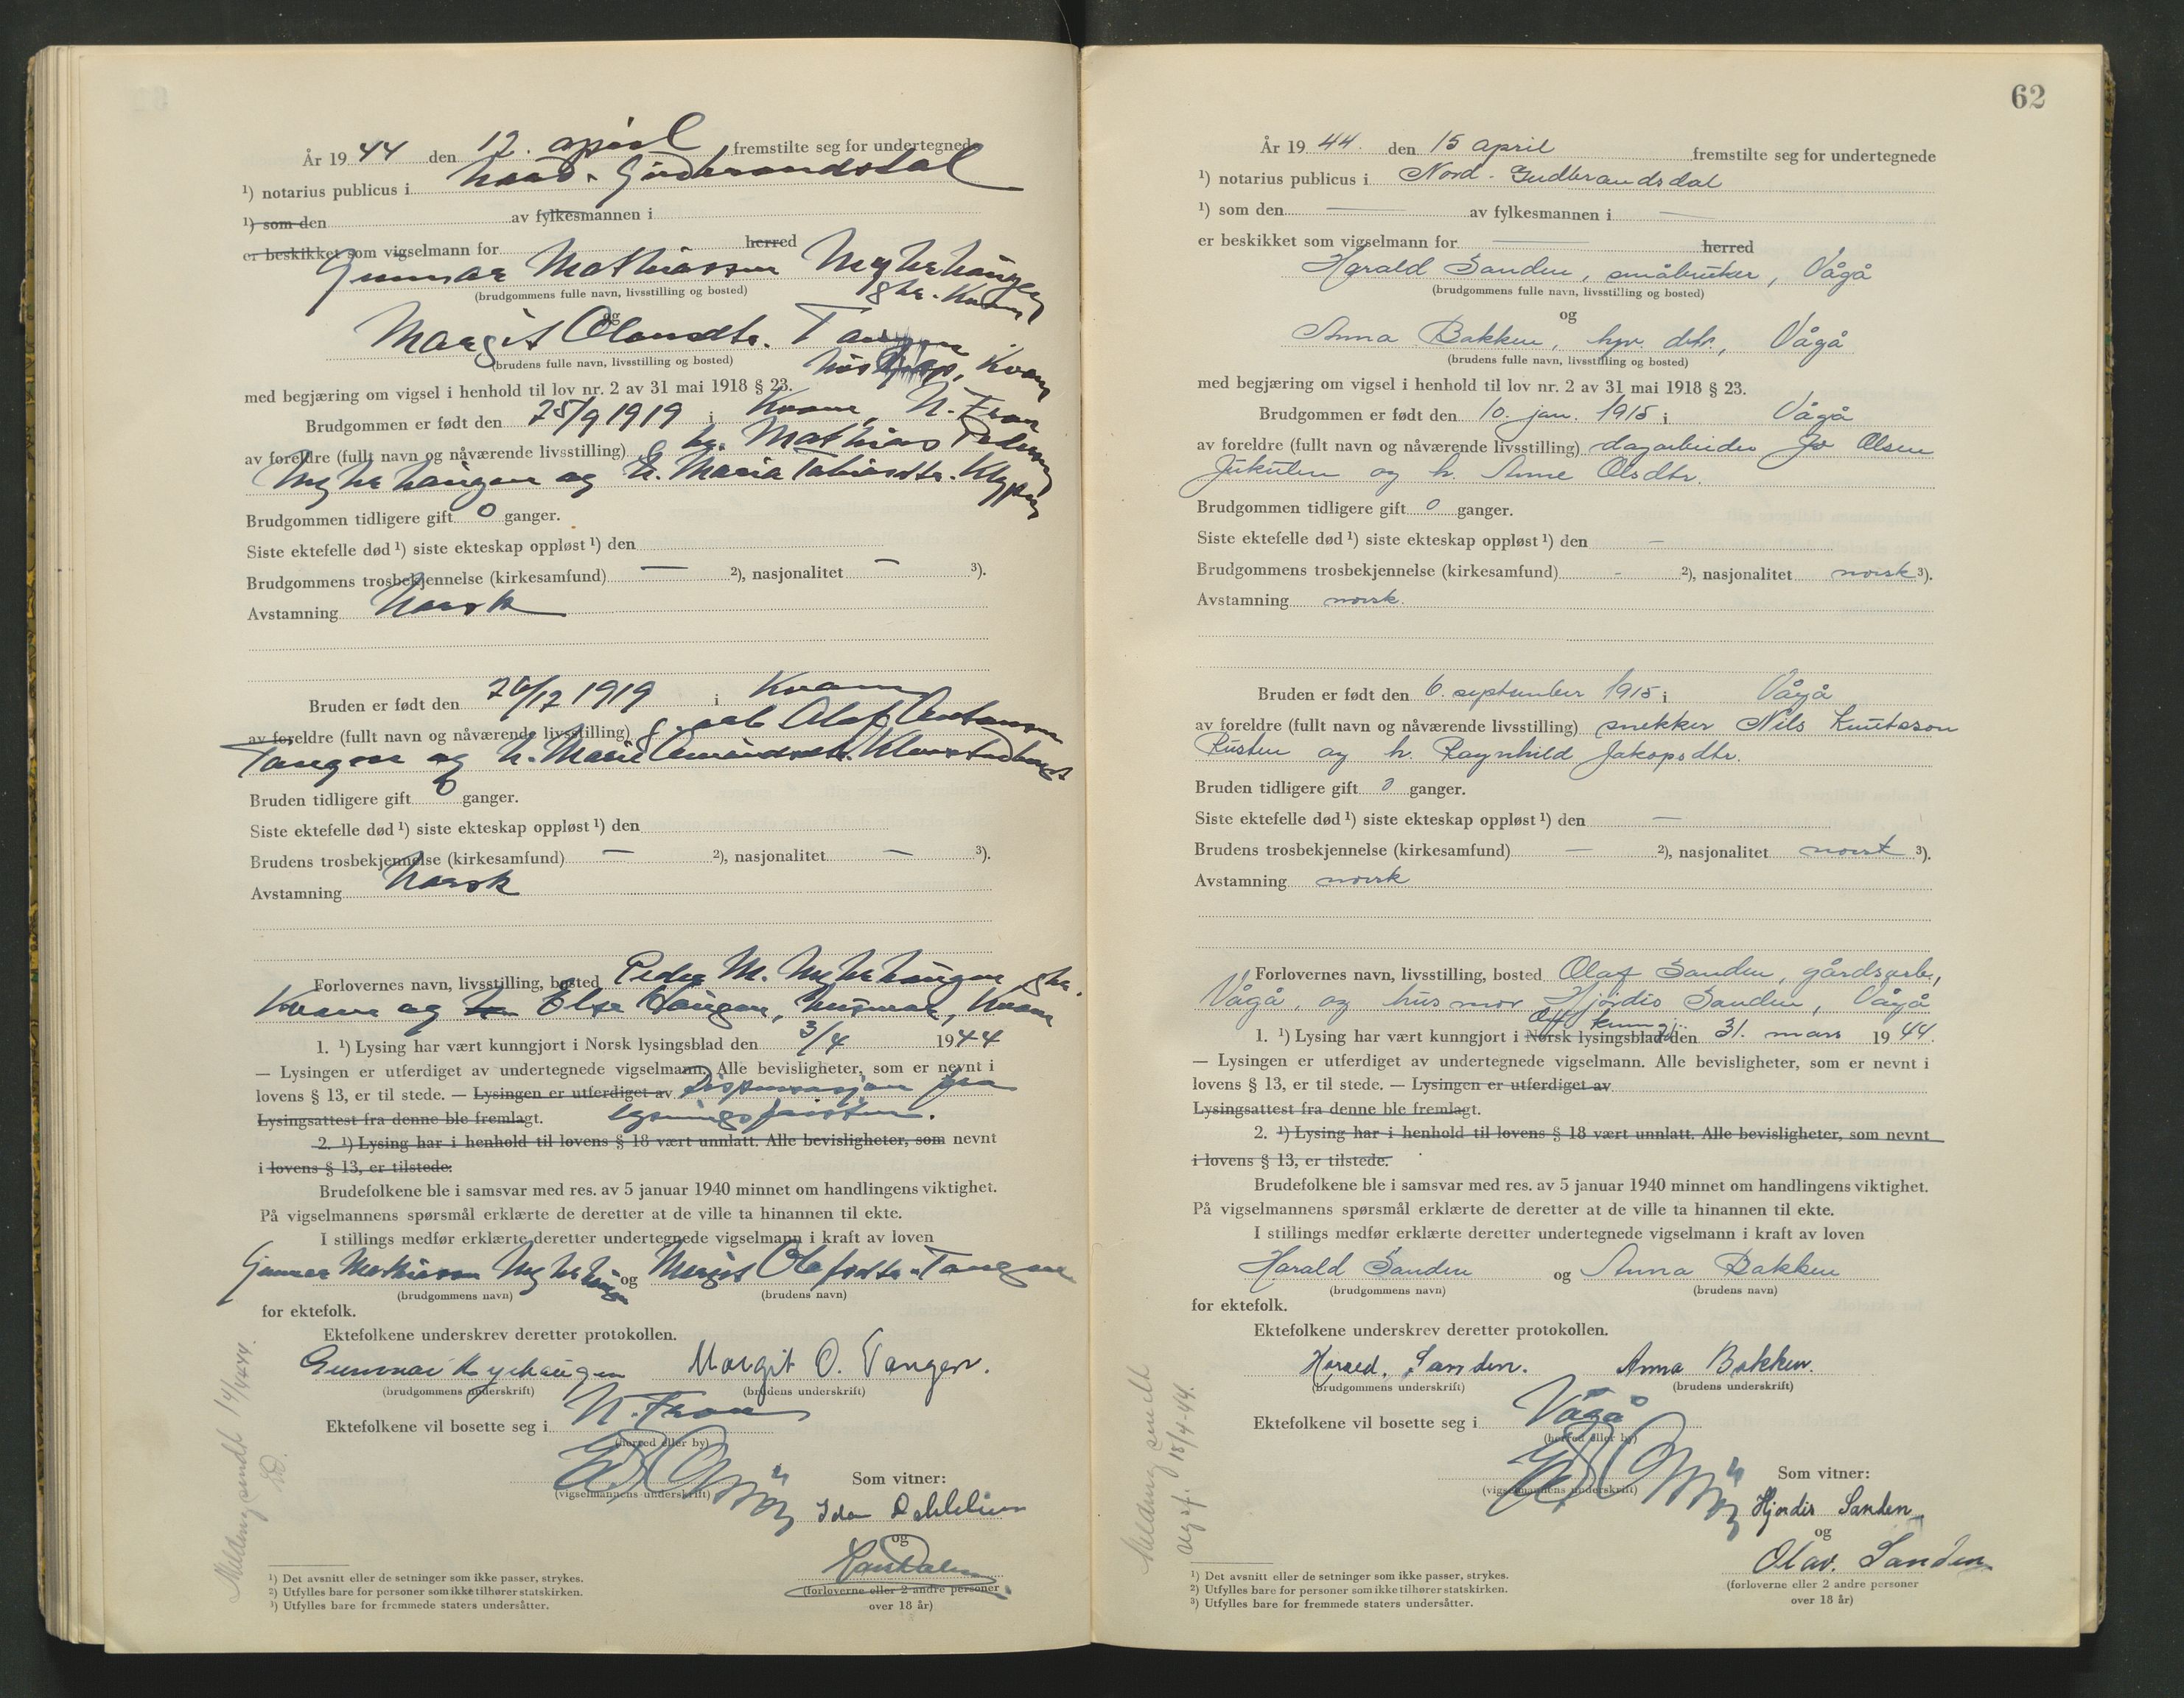 År 1944 den 12. april fremstilte seg for undertegnede
¹) notarius publicus i Nord-Gudbrandsdal
¹) som den av fylkesmannen i
er beskikket som vigselmann for herred
Gunnar Mathiassen Nyhehaugen
(brudgommens fulle navn, livsstilling og bosted)
gbr. Kvam
og
Margit Olavsdtr. Tangen
(brudens fulle navn, livsstilling og bosted)
Kvam
med begjæring om vigsel i henhold til lov nr. 2 av 31 mai 1918 § 23.
Brudgommen er født den 25/9 1919 i Kvam, N. Fron
av foreldre (fullt navn og nåværende livsstilling) Mathias Pedersen
og h. Maria Tobiasdtr.
Brudgommen tidligere gift 0 ganger.
Siste ektefelle død ¹) siste ekteskap oppløst ¹) den
Brudgommens trosbekjennelse (kirkesamfund) — ²), nasjonalitet — ³).
Avstamning Norsk
Bruden er født den 26/12 1919 i Kvam
av foreldre (fullt navn og nåværende livsstilling) Olaf
Tangen og h. Marie
Bruden tidligere gift 0 ganger.
Siste ektefelle død ¹) siste ekteskap oppløst ¹) den
Brudens trosbekjennelse (kirkesamfund) — ²), nasjonalitet — ³).
Avstamning Norsk
Forlovernes navn, livsstilling, bosted Peder M. gbr.
Kvam og Else Haugen, husmor, Kvam
1. ¹) Lysing har vært kunngjort i Norsk lysingsblad den 3/4 1944
— Lysingen er utferdiget av undertegnede vigselmann. Alle bevisligheter, som er nevnt i
lovens § 13, er til stede. — Lysingen er utferdiget av Dispensasjon fra
Lysingsattest fra denne ble fremlagt. lysingsfristen.
2. ¹) Lysing har i henhold til lovens § 18 vært unnlatt. Alle bevisligheter, som nevnt
i lovens § 13, er tilstede.
Brudefolkene ble i samsvar med res. av 5 januar 1940 minnet om handlingens viktighet.
På vigselmannens spørsmål erklærte de deretter at de ville ta hinannen til ekte.
I stillings medfør erklærte deretter undertegnede vigselmann i kraft av loven
Gunnar Mathiassen og Margit Olafsdtr. Tangen
(brudgommens navn) (brudens navn)
for ektefolk.
Ektefolkene underskrev deretter protokollen.
Gunnar Margit O. Tangen.
(brudgommens underskrift) (brudens underskrift)
Ektefolkene vil bosette seg i N. Fron
(herred eller by)
Som vitner:
(vigselmannens underskrift)
og
(forloverne eller 2 andre personer
over 18 år)
Melding sendt 14/4 44.
¹) Det avsnitt eller de setninger som ikke passer, strykes.
²) Utfylles bare for personer som ikke tilhører statskirken.
³) Utfylles bare for fremmede staters undersåtter.
62
År 1944. den 15 april fremstilte seg for undertegnede
¹) notarius publicus i Nord-Gudbrandsdal
¹) som den — av fylkesmannen i —
er beskikket som vigselmann for — herred
Harald Sanden, småbruker, Vågå
(brudgommens fulle navn, livsstilling og bosted)
og
Anna Bakken, hpv. dtr., Vågå
(brudens fulle navn, livsstilling og bosted)
med begjæring om vigsel i henhold til lov nr. 2 av 31 mai 1918 § 23.
Brudgommen er født den 10. jan. 1915 i Vågå
av foreldre (fullt navn og nåværende livsstilling) dagarbeider Jo Olsen
og h. Anne Olsdtr.
Brudgommen tidligere gift 0 ganger.
Siste ektefelle død ¹) siste ekteskap oppløst ¹) den —
Brudgommens trosbekjennelse (kirkesamfund) - ²), nasjonalitet norsk ³).
Avstamning norsk.
Bruden er født den 6. september 1915 i Vågå
av foreldre (fullt navn og nåværende livsstilling) snekker Nils Knutsson
Rusten og h. Ragnhild Jakopsdtr.
Bruden tidligere gift 0 ganger.
Siste ektefelle død ¹) siste ekteskap oppløst ¹) den —
Brudens trosbekjennelse (kirkesamfund) — ²), nasjonalitet norsk ³).
Avstamning norsk
Forlovernes navn, livsstilling, bosted Olaf Sanden, gårdsarb.,
Vågå, og husmor Hjørdis Sanden, Vågå
Off. kunngj.
1. ¹) Lysing har vært kunngjort i Norsk lysingsblad den 31. mars 1944.
— Lysingen er utferdiget av undertegnede vigselmann. Alle bevisligheter, som er nevnt i
lovens § 13, er til stede. — Lysingen er utferdiget av
Lysingsattest fra denne ble fremlagt.
2. ¹) Lysing har i henhold til lovens § 18 vært unnlatt. Alle bevisligheter, som nevnt
i lovens § 13, er tilstede.
Brudefolkene ble i samsvar med res. av 5 januar 1940 minnet om handlingens viktighet.
På vigselmannens spørsmål erklærte de deretter at de ville ta hinannen til ekte.
I stillings medfør erklærte deretter undertegnede vigselmann i kraft av loven
Harald Sanden og Anna Bakken
(brudgommens navn) (brudens navn)
for ektefolk.
Ektefolkene underskrev deretter protokollen.
Harald. Sanden. Anna Bakken.
(brudgommens underskrift) (brudens underskrift)
Ektefolkene vil bosette seg i Vågå
(herred eller by)
Som vitner:
(vigselmannens underskrift)
Hjordis Sanden
og
Olav. Sanden
(forloverne eller 2 andre personer
over 18 år)
Melding sendt
18/4-44.
¹) Det avsnitt eller de setninger som ikke passer, strykes.
²) Utfylles bare for personer som ikke tilhører statskirken.
³) Utfylles bare for fremmede staters undersåtter.